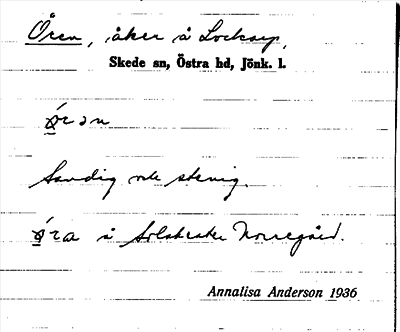 Ören, åker å Lockarp,
Skede sn, Östra hd, Jönk. l.
ørən
Sandig och stenig.
øra å Norregård.
Annalisa Anderson 1936